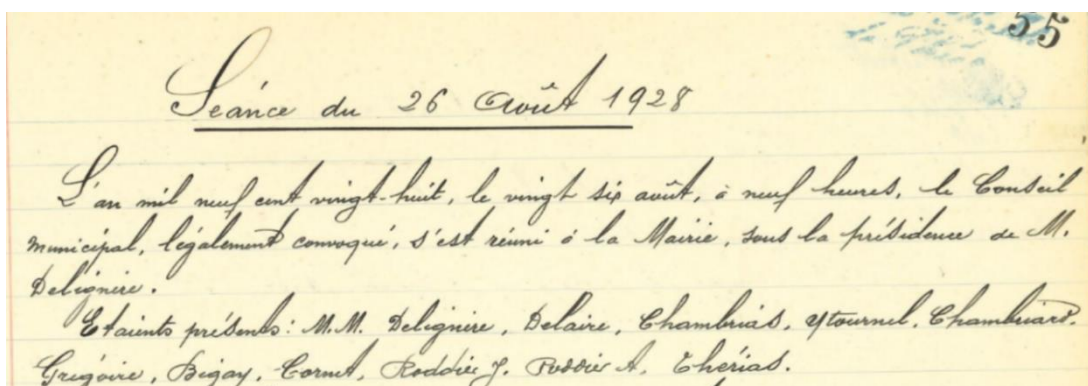 55
Séance du 26 Août 1928
L'an mil neuf cent vingt-huit, le vingt six août, à neuf heures, le Conseil
municipal, légalement convoqué, s'est réuni à la Mairie, sous la présidence de M.
Delignère.
Etaients présents: M.M. Delignère, Delaire, Chambrias, Ytournel, Chambriard,
Grégoire, Bigay, Cornet, Roddier J. Roddier A, Thérias.